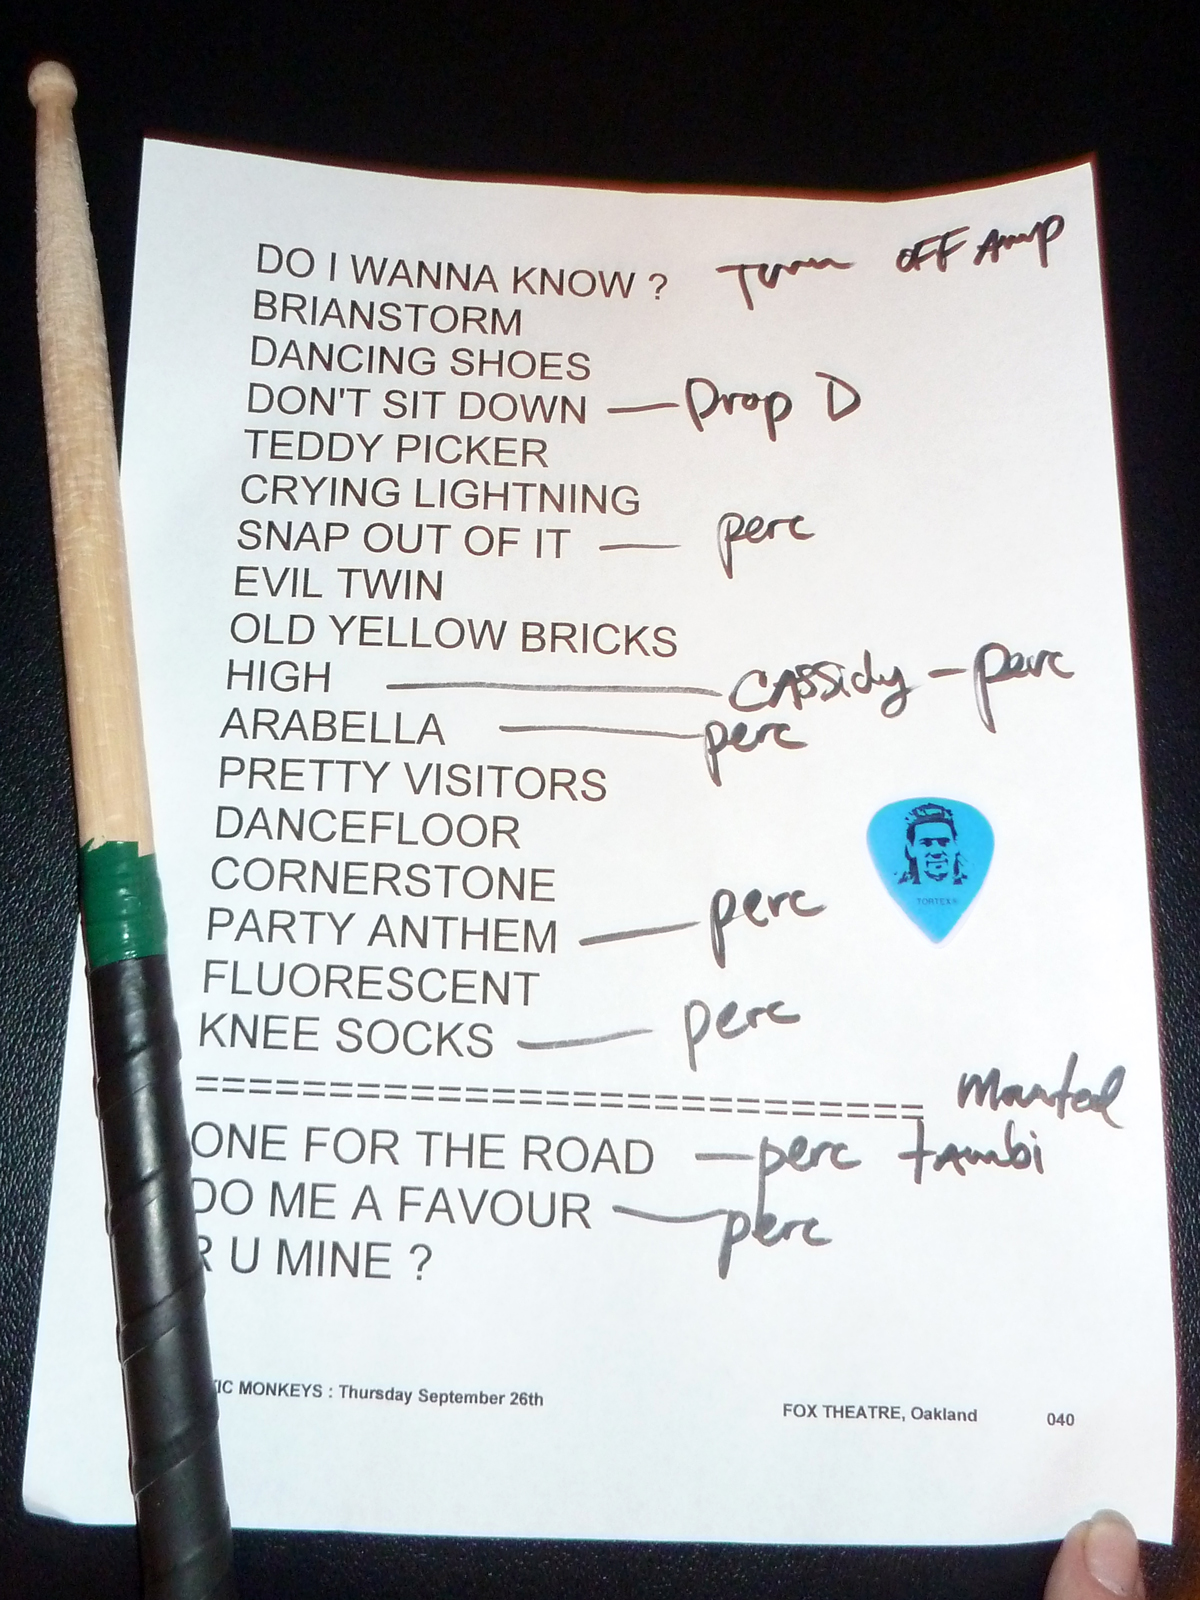 DO I WANNA KNOW ? Turn OFF Amp
BRIANSTORM
DANCING SHOES
DON'T SIT DOWN — Drop D
TEDDY PICKER
CRYING LIGHTNING
SNAP OUT OF IT — perc
EVIL TWIN
OLD YELLOW BRICKS
HIGH — CASSidy - perc
ARABELLA — perc
PRETTY VISITORS
DANCEFLOOR
CORNERSTONE
PARTY ANTHEM — perc
TORTEX®
FLUORESCENT
KNEE SOCKS — perc
=================================
Mounted
ONE FOR THE ROAD — perc tAmbi
DO ME A FAVOUR — perc
R U MINE ?
IC MONKEYS : Thursday September 26th
FOX THEATRE, Oakland 040